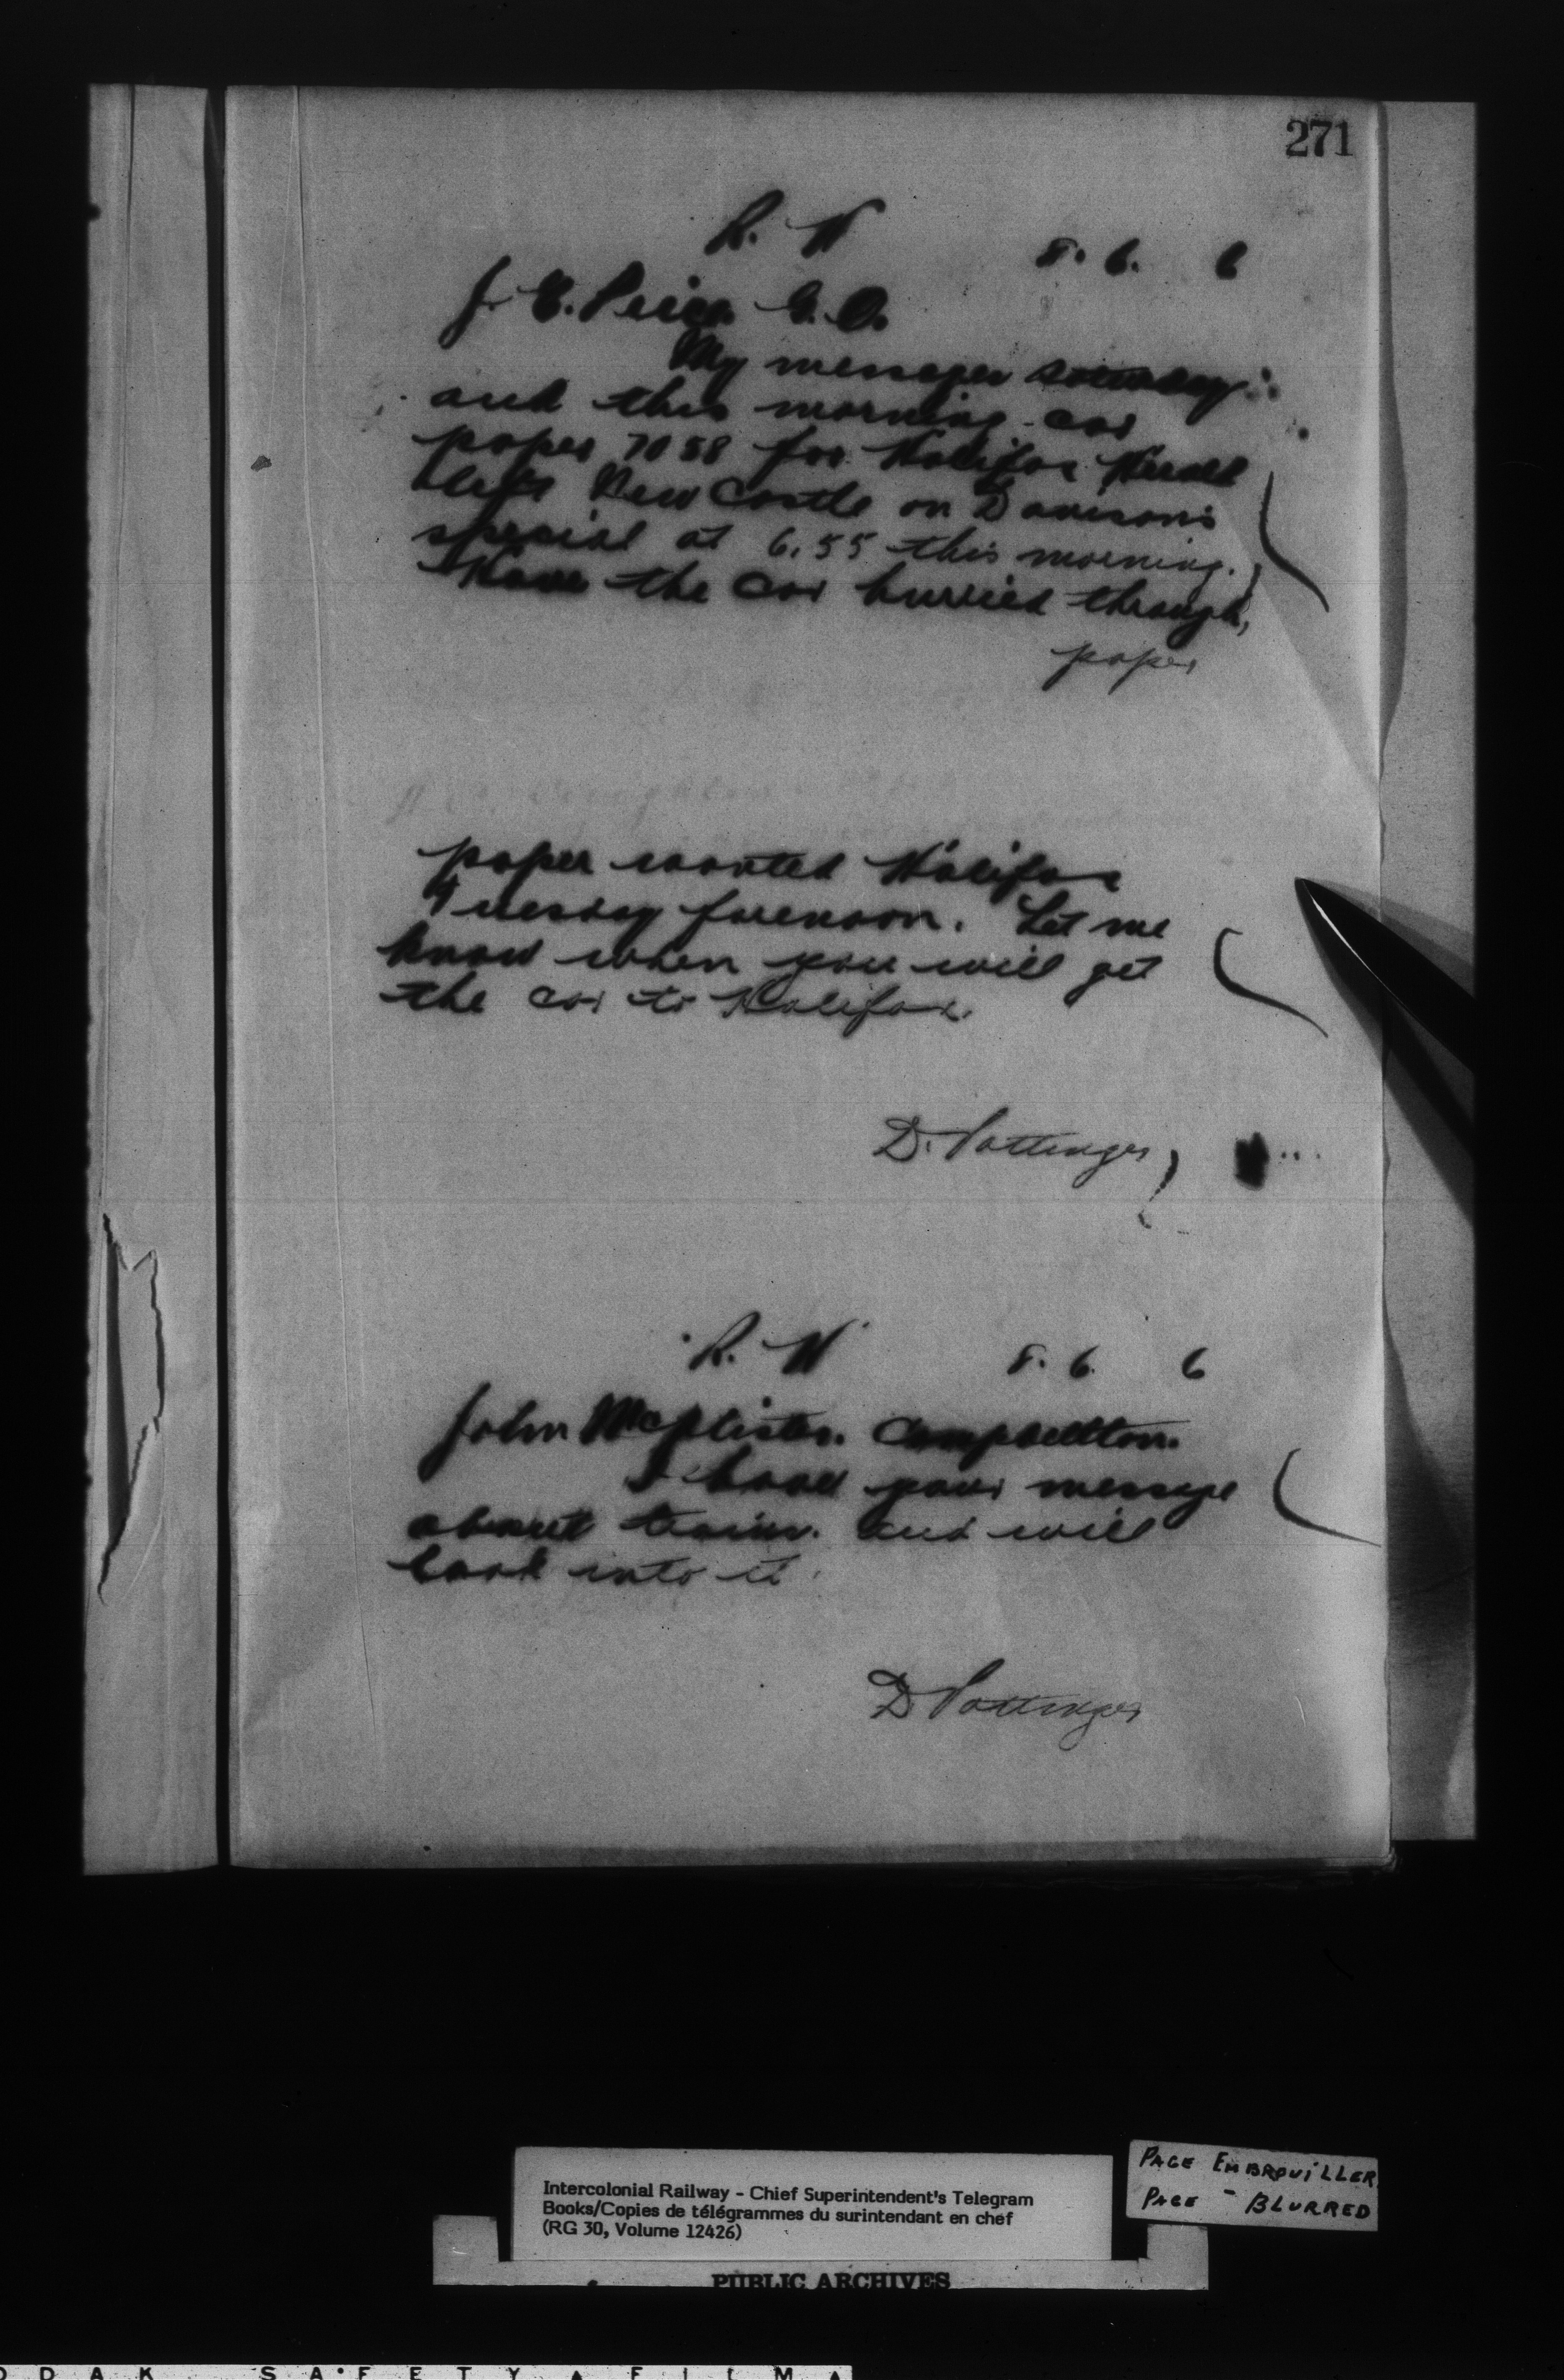 271
R. W 8. 6. 6
J. E. Price. G. O.
My messages
and this morning. car
paper 7058 for Halifax Herald
left New Castle on Davisons
special at 6.55 this morning.
Have the car hurried through,
paper
paper wanted Halifax
Tuesday forenoon. Let me
know when you will get
the car to Halifax.
D. Pottinger
R. W 8. 6. 6
John McAlister. Campbellton.
I have your message
about train. and will
look into it.
D Pottinger
PAGE EMBROUILLER
PAGE - BLURRED
Intercolonial Railway - Chief Superintendent's Telegram
Books/Copies de télégrammes du surintendant en chef
(RG 30, Volume 12426)
PUBLIC ARCHIVES
O D A K S A F E T Y F I L M